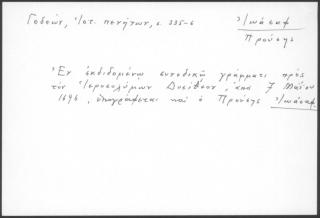 Γεδεών, Πατ. πινάκων, σ. 335-6
Ἰωάσαφ
Προύσης
Ἐν ἐκδιδομένῳ συνοδικῷ γράμματι πρὸς
τὸν Ἱεροσολύμων Δοσίθεον, ἀπὸ 7 Μαΐου
1696, ὑπογράφεται καὶ ὁ Προύσης Ἰωάσαφ.